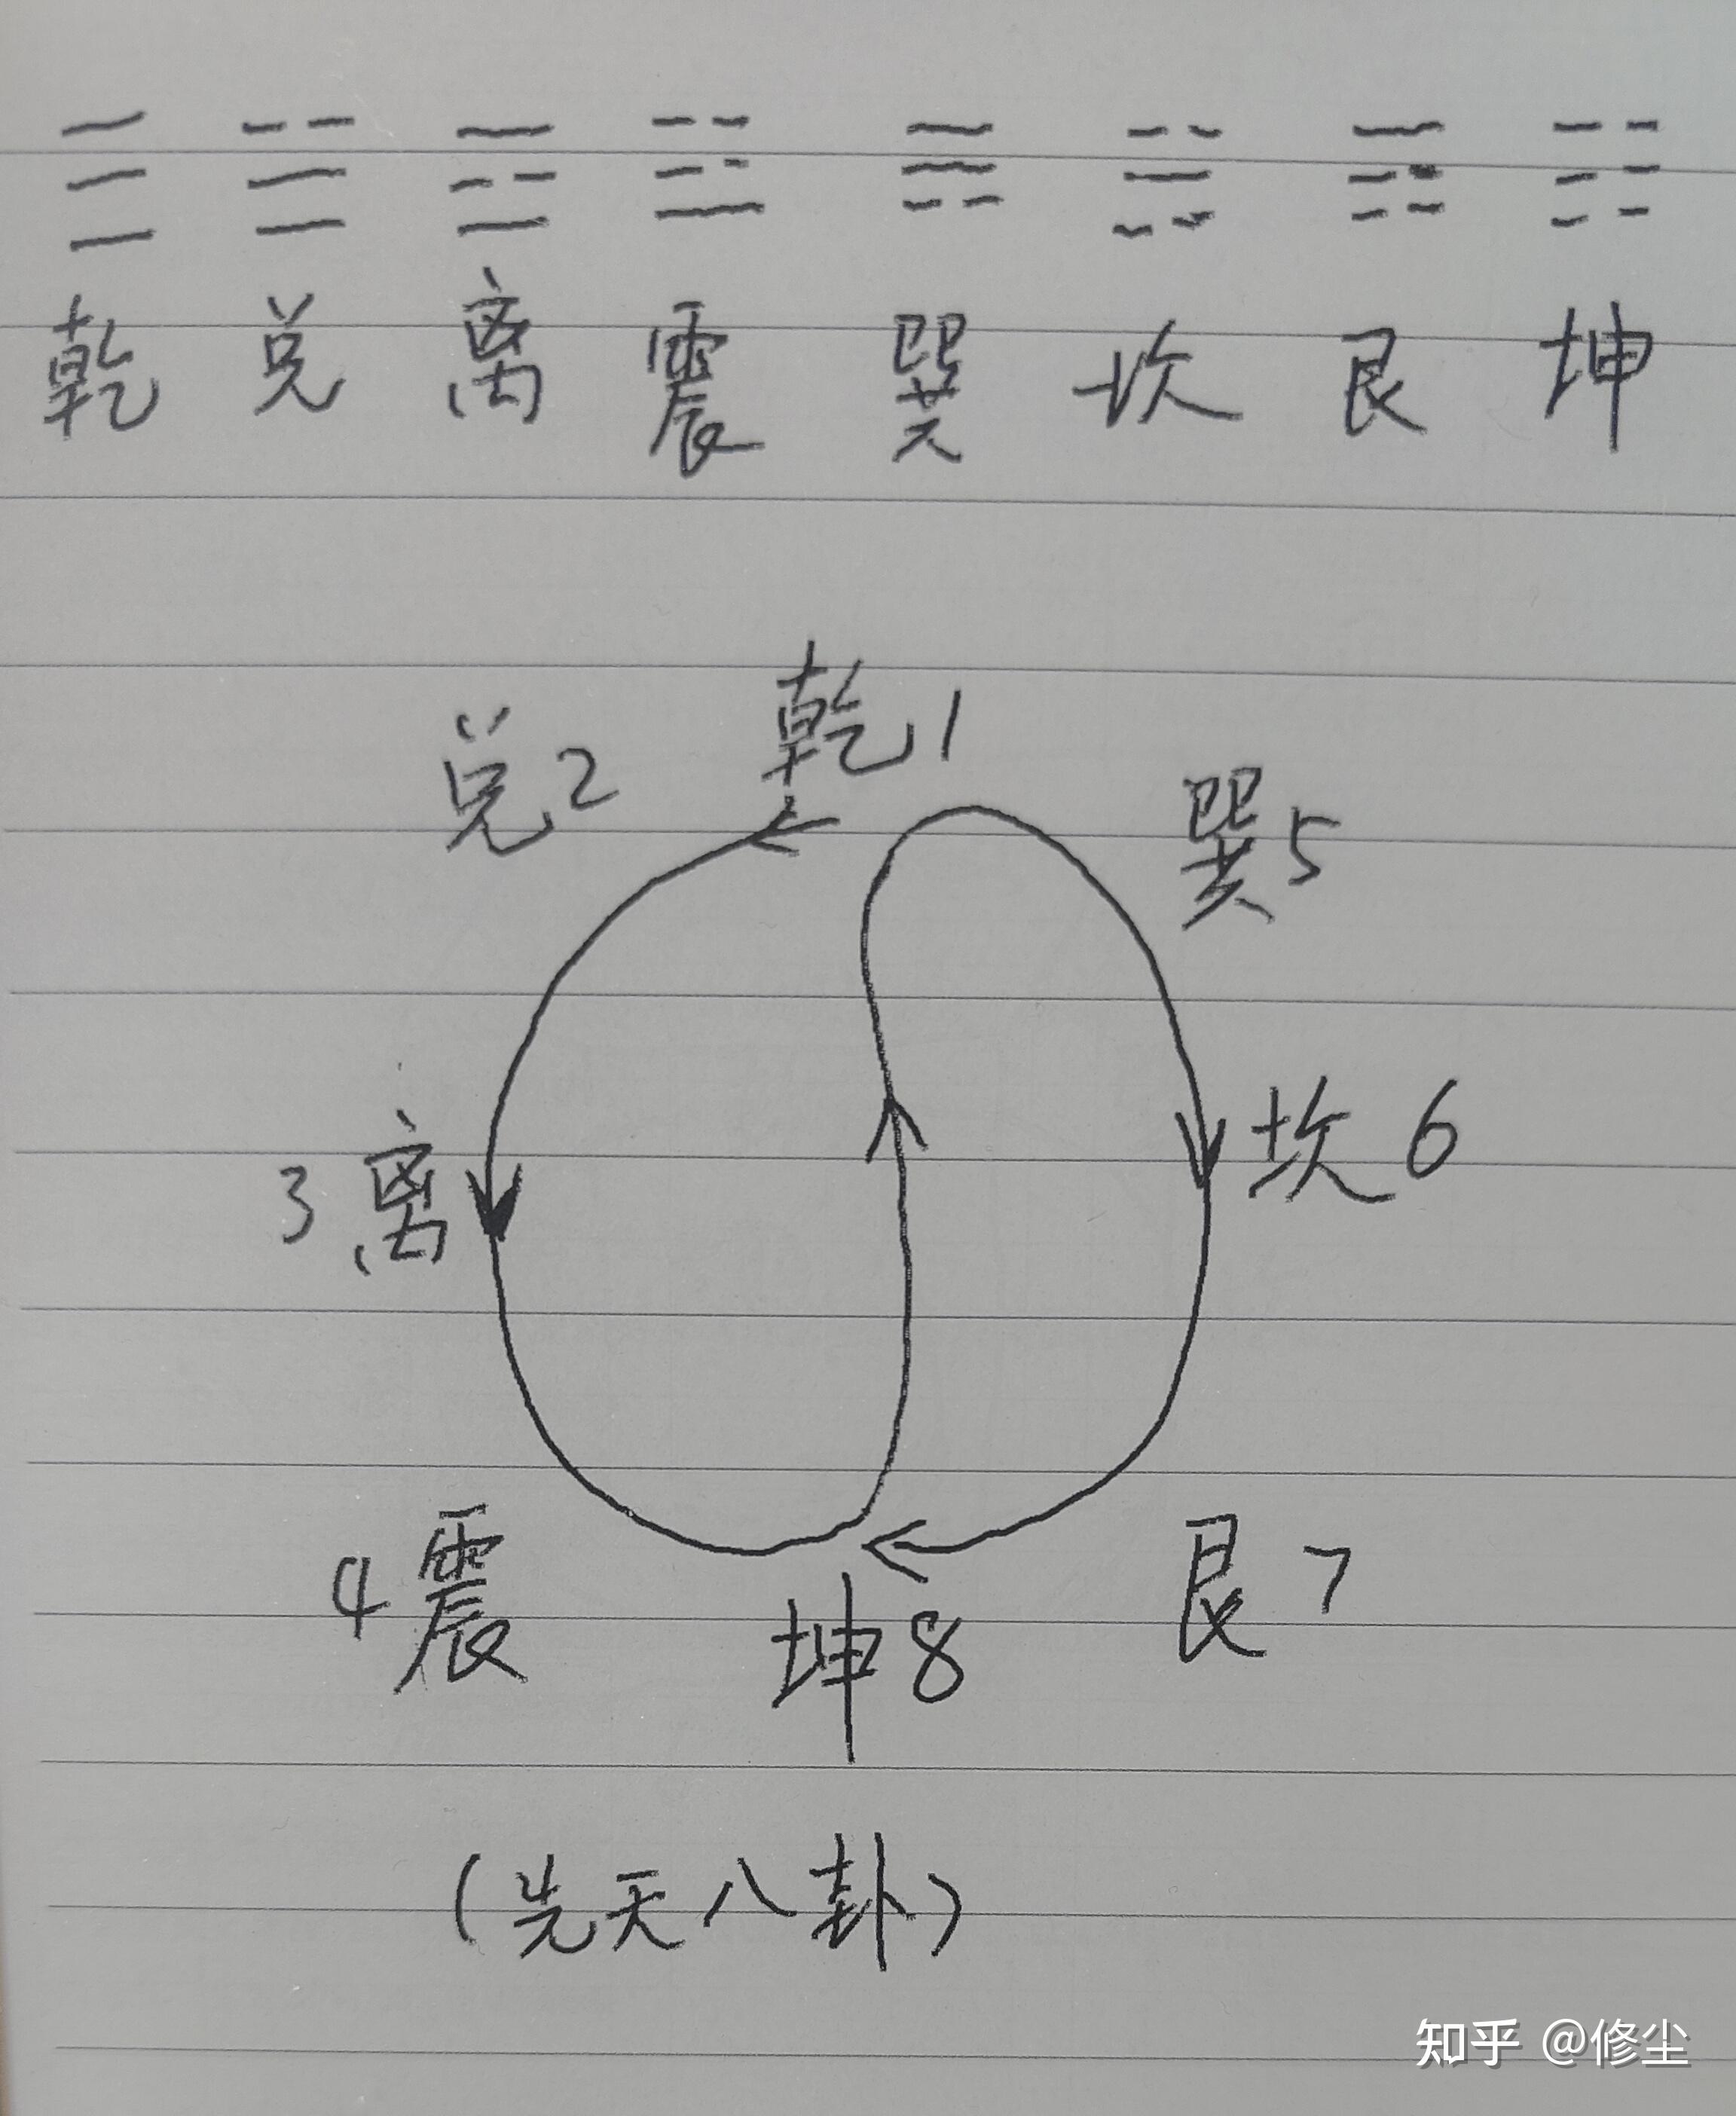 乾 兑 离 震 巽 坎 艮 坤
乾1
兑2
巽5
3离
坎6
4震
艮7
坤8
(先天八卦)
知乎 @修尘